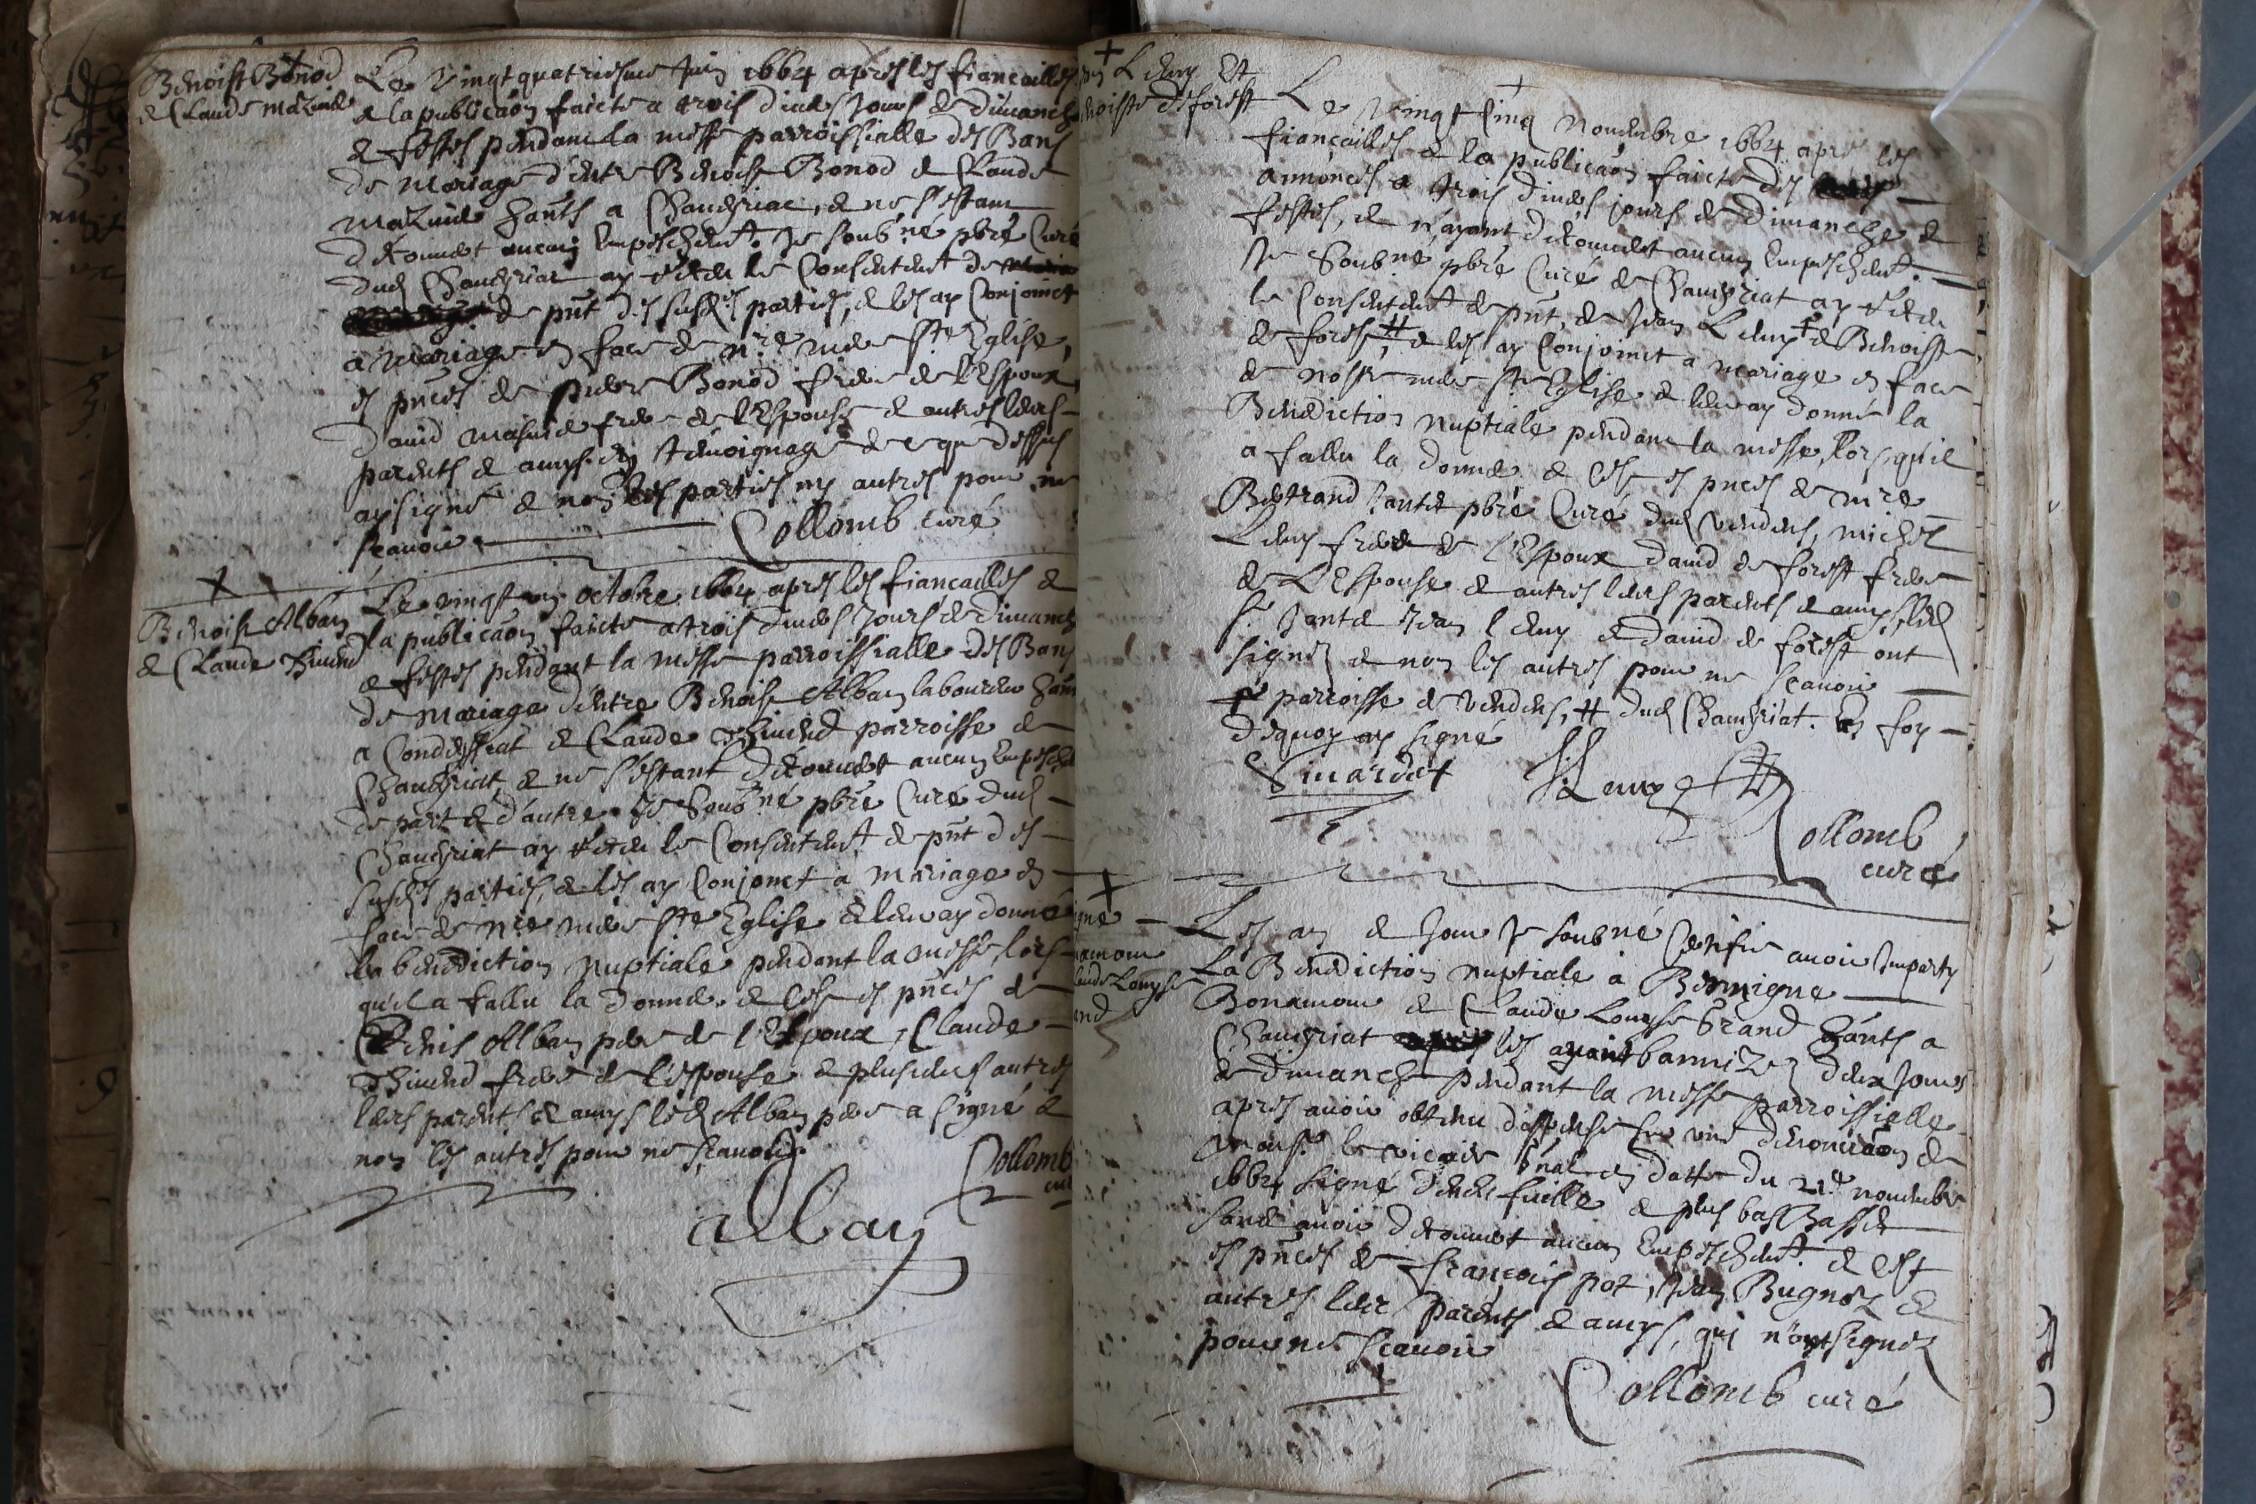 Benoist Bonod
& Claude Mazuid
Le vingt quatriesme Juin 1664 apres les fiancailles
& la publicaon faicte a trois divers Jours de dimanche
& festes pendant la messe parroissialle des Bans
de Mariage d'entre Benoist Bonod & Claude
Mazuid hants a Chaveyriac, & ne s'estant
decouvert aucun Empeschent. Je soubné pbre Curé
dud Chaveyriat ay receu le Consentent de
de pnt des susd parties, & les ay Conjoinct
a Mariage en face de nre mere ste Eglise,
es pnces de pierre Bonod frere de l'Espoux,
david Masuid frere de l'Espouse & autres leurs
parents & amys. en temoignage de ce que dessus
ay signé & non les parties ny autres pour ne
scavoir.
Collomb curé
Benoist Alban
& Claude Thivend
Le vingt un octobre 1664 apres les fiancailles &
la publicaon faicte a trois divers Jours de Dimanch
& festes pendant la Messe parroissialle des Bans
de Mariage d'entre Benoist Alban laboureur hant
a Condeyssiat & Claude Thivend parroisse de
Chaveyriat, & ne s'estant decouvert aucun Empesche
de part & d'autre. Je Soubné pbre Curé dud
Chaveyriat ay receu le Consentent de pnt des
susd parties, & les ay Conjonct a Mariage en
face de nre mere ste Eglise & leur ay donné
la benediction nuptiale pendant la messe lors
qu'il a fallu la donner. & c'est es pnces de
Denis Alban pere de l'Espoux, Claude
Thivend frere de l'espouse & plusieurs autres
leurs parents & amys led Alban pere a signé &
non les autres pour ne scavoir.
Collomb
cur
alban
Leuny Et
noiste deforest
Le vingt Cinq Novembre 1664 apres les
fiançailles & la publicaon faicte des
annonces a trois divers jours de Dimanche &
festes, & n'ayant decouvert aucun Empeschent.
Je Soubné pbre Curé de Chaveyriat ay receu
le Consentent de pnt, de Jean Leuny + & Benoiste
de forest, # & les ay Conjoinct a mariage en face
de nostre mere ste Eglise & leur ay donné la
Benediction nuptiale pendant la messe, lorsqu'il
a fallu la donner & c'est es pnces de mre
Bertrand Jantet pbre Curé dud Vendens, michel
Leuny frere de l'Espoux david de forest frere
de L'Espouse & autres leurs parents & amys, led
sr Jantet Jean leuny & david de forest ont
signé & non les autres pour ne scavoir
+ parroisse de Vendens, # dud Chaveyriat. En foy
dequoy ay signé
Collomb
curé
igne
namour
laude Louyse
and
Les an & Jour Je soubné Certifie avoir Imparty
La Benediction nuptiale à Benigne
Bonamour & Claude Louyse brand hants a
Chaveyriat les ayant bannizez deux Jours
de dimanche pendant la messe parroissialle
apres avoir obtenu dispense pour une denonciaon de
Monsr le vicaire gnal en datte du 21e novembre
1664 signé & plus bas
sans avoir decouvert aucun Empeschent. & c'est
es pnces de francois pot, Jean Bugnoz &
autres leur parents & amys, qui n'ont signez
pour ne scavoir
Collomb curé